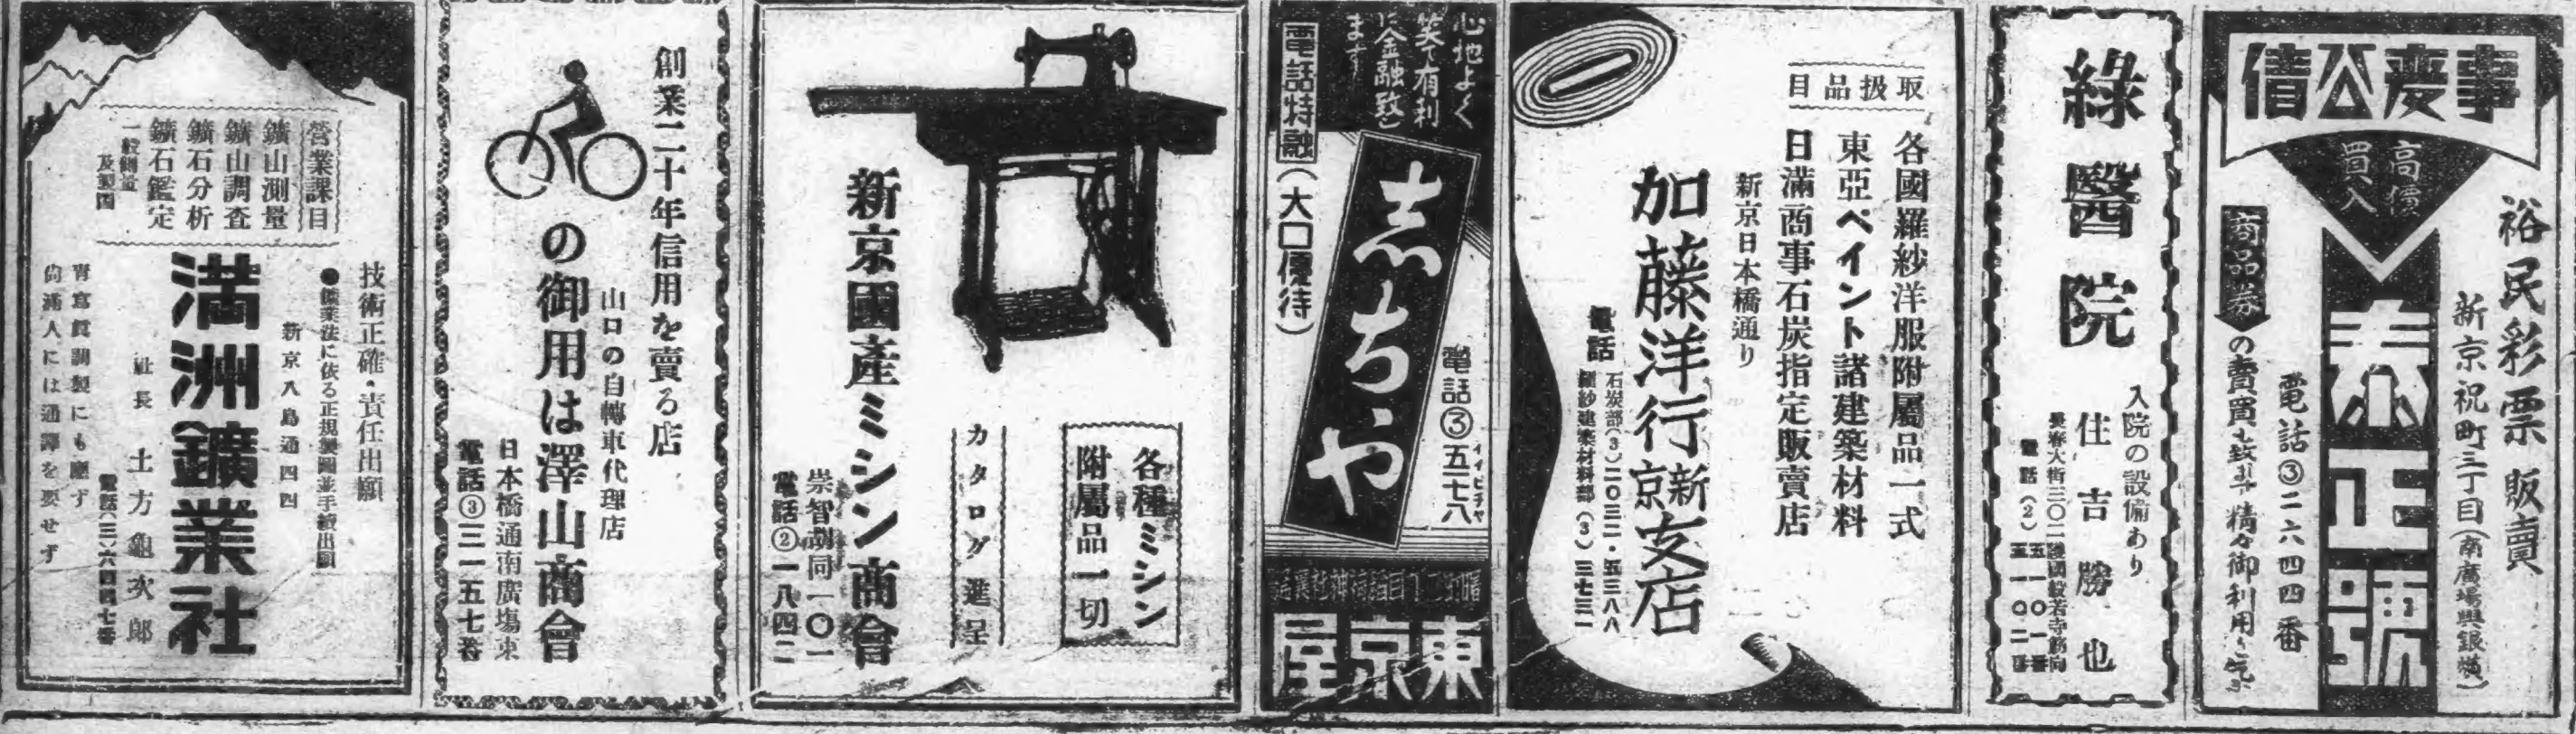 事変公債
高價
買入
裕民彩票販賣
新京祝町三丁目(南廣場興銀橫)
泰正號
電話③二六四四番
商品券
の賣買も致ます精々御利用を乞ふ
綠醫院
入院の設備あり
住吉勝也
長春大街三〇二護國般若寺筋向
電話(2)
五一〇〇一番
五一〇〇二番
取扱品目
各國羅紗洋服附屬品一式
東亞ペイント諸建築材料
日滿商事石炭指定販賣店
新京日本橋通り
加藤洋行新京支店
電話
石炭部(3)二〇三一・五三八八
羅紗建築材料部(3)三七三一
心地よく
笑て有利
に金融致し
ます
電話特融(大口優待)
志ちや
電話③五三七八
東京屋
各種ミシン
附屬品一切
カタログ進呈
新京國產ミシン商會
崇智胡同一〇一
電話②一八四二
創業二十年信用を賣る店
山口の自轉車代理店
の御用は澤山商會
日本橋通南廣場東
電話③二一五七番
營業課目
鑛山測量
鑛山調査
鑛石分析
鑛石鑑定
一般測量
及製圖
技術正確・責任出願
●鑛業法に依る正規製圖並手續出願
新京八島通四四
滿洲鑛業社
社長 土方龜次郎
電話(三)六四四七番
靑寫眞調製にも應ず
尙滿人には通譯を要せず